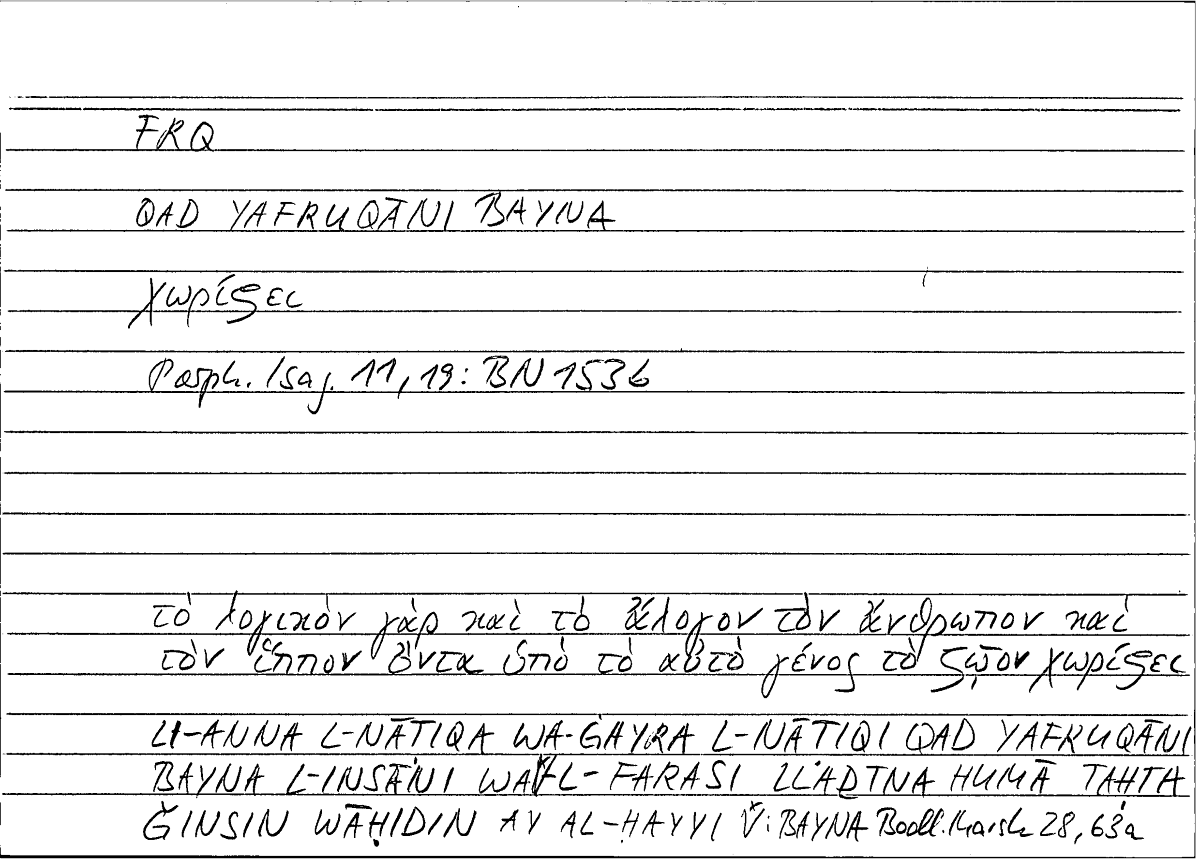 FRQ
QAD YAFRUQĀNI BAYNA
χωρίζει
Porph. Isag. 11, 19: BN 153b
τὸ λογικὸν γὰρ καὶ τὸ ἄλογον τὸν ἄνθρωπον καὶ
τὸν ἵππον ὄντα ὑπὸ τὸ αὐτὸ γένος τὸ ζῷον χωρίζει
LI-ANNA L-NĀṬIQA WA-ĠAYRA L-NĀṬIQI QAD YAFRUQĀNI
BAYNA L-INSĀNI WA L-FARASI LLAḎĪNA HUMĀ TAḤTA
ǦINSIN WĀḤIDIN AY AL-ḤAYYI V: BAYNA Bodl. Marsh 28, 63a